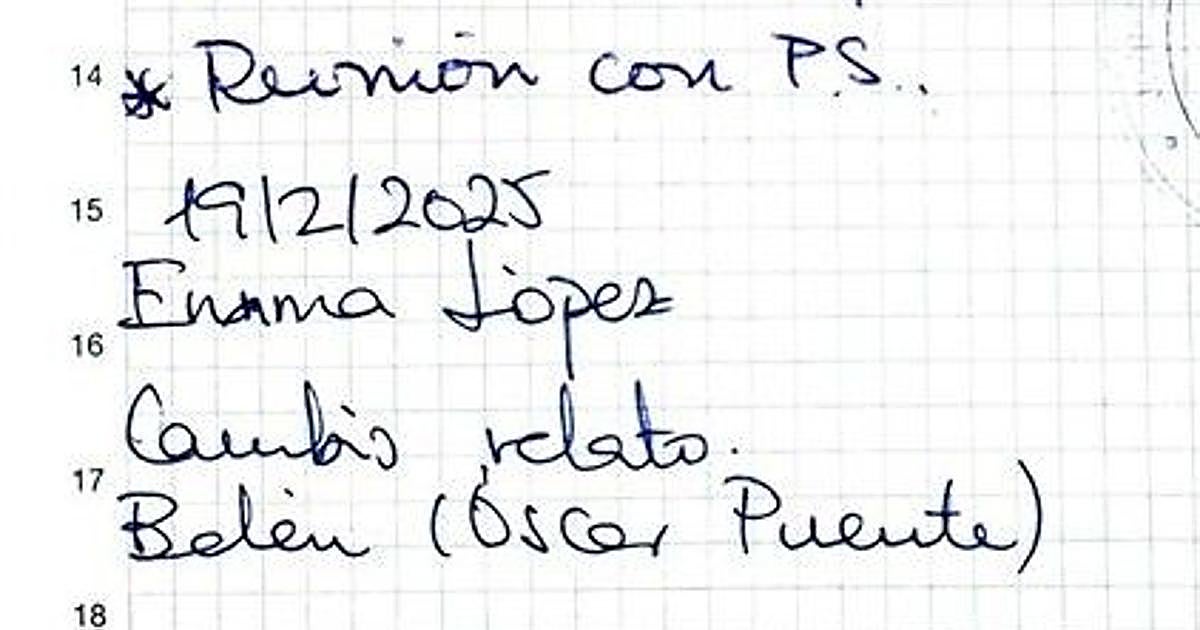 14 * Reunión con P.S..
15 19/2/2025
Emma López
16
Cambio relato.
17
Belén (Óscar Puente)
18